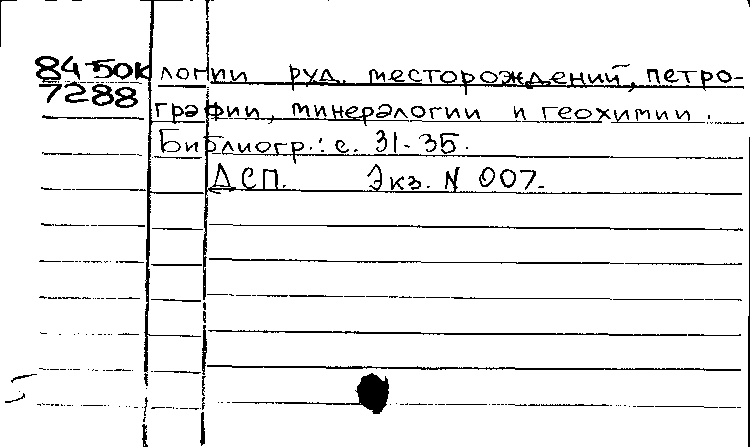 84-50К логии руд. месторождений, петро-
7288 графии, минералогии и геохимии.
Библиогр.: с. 31-35.
ДСП. Экз. N 007.